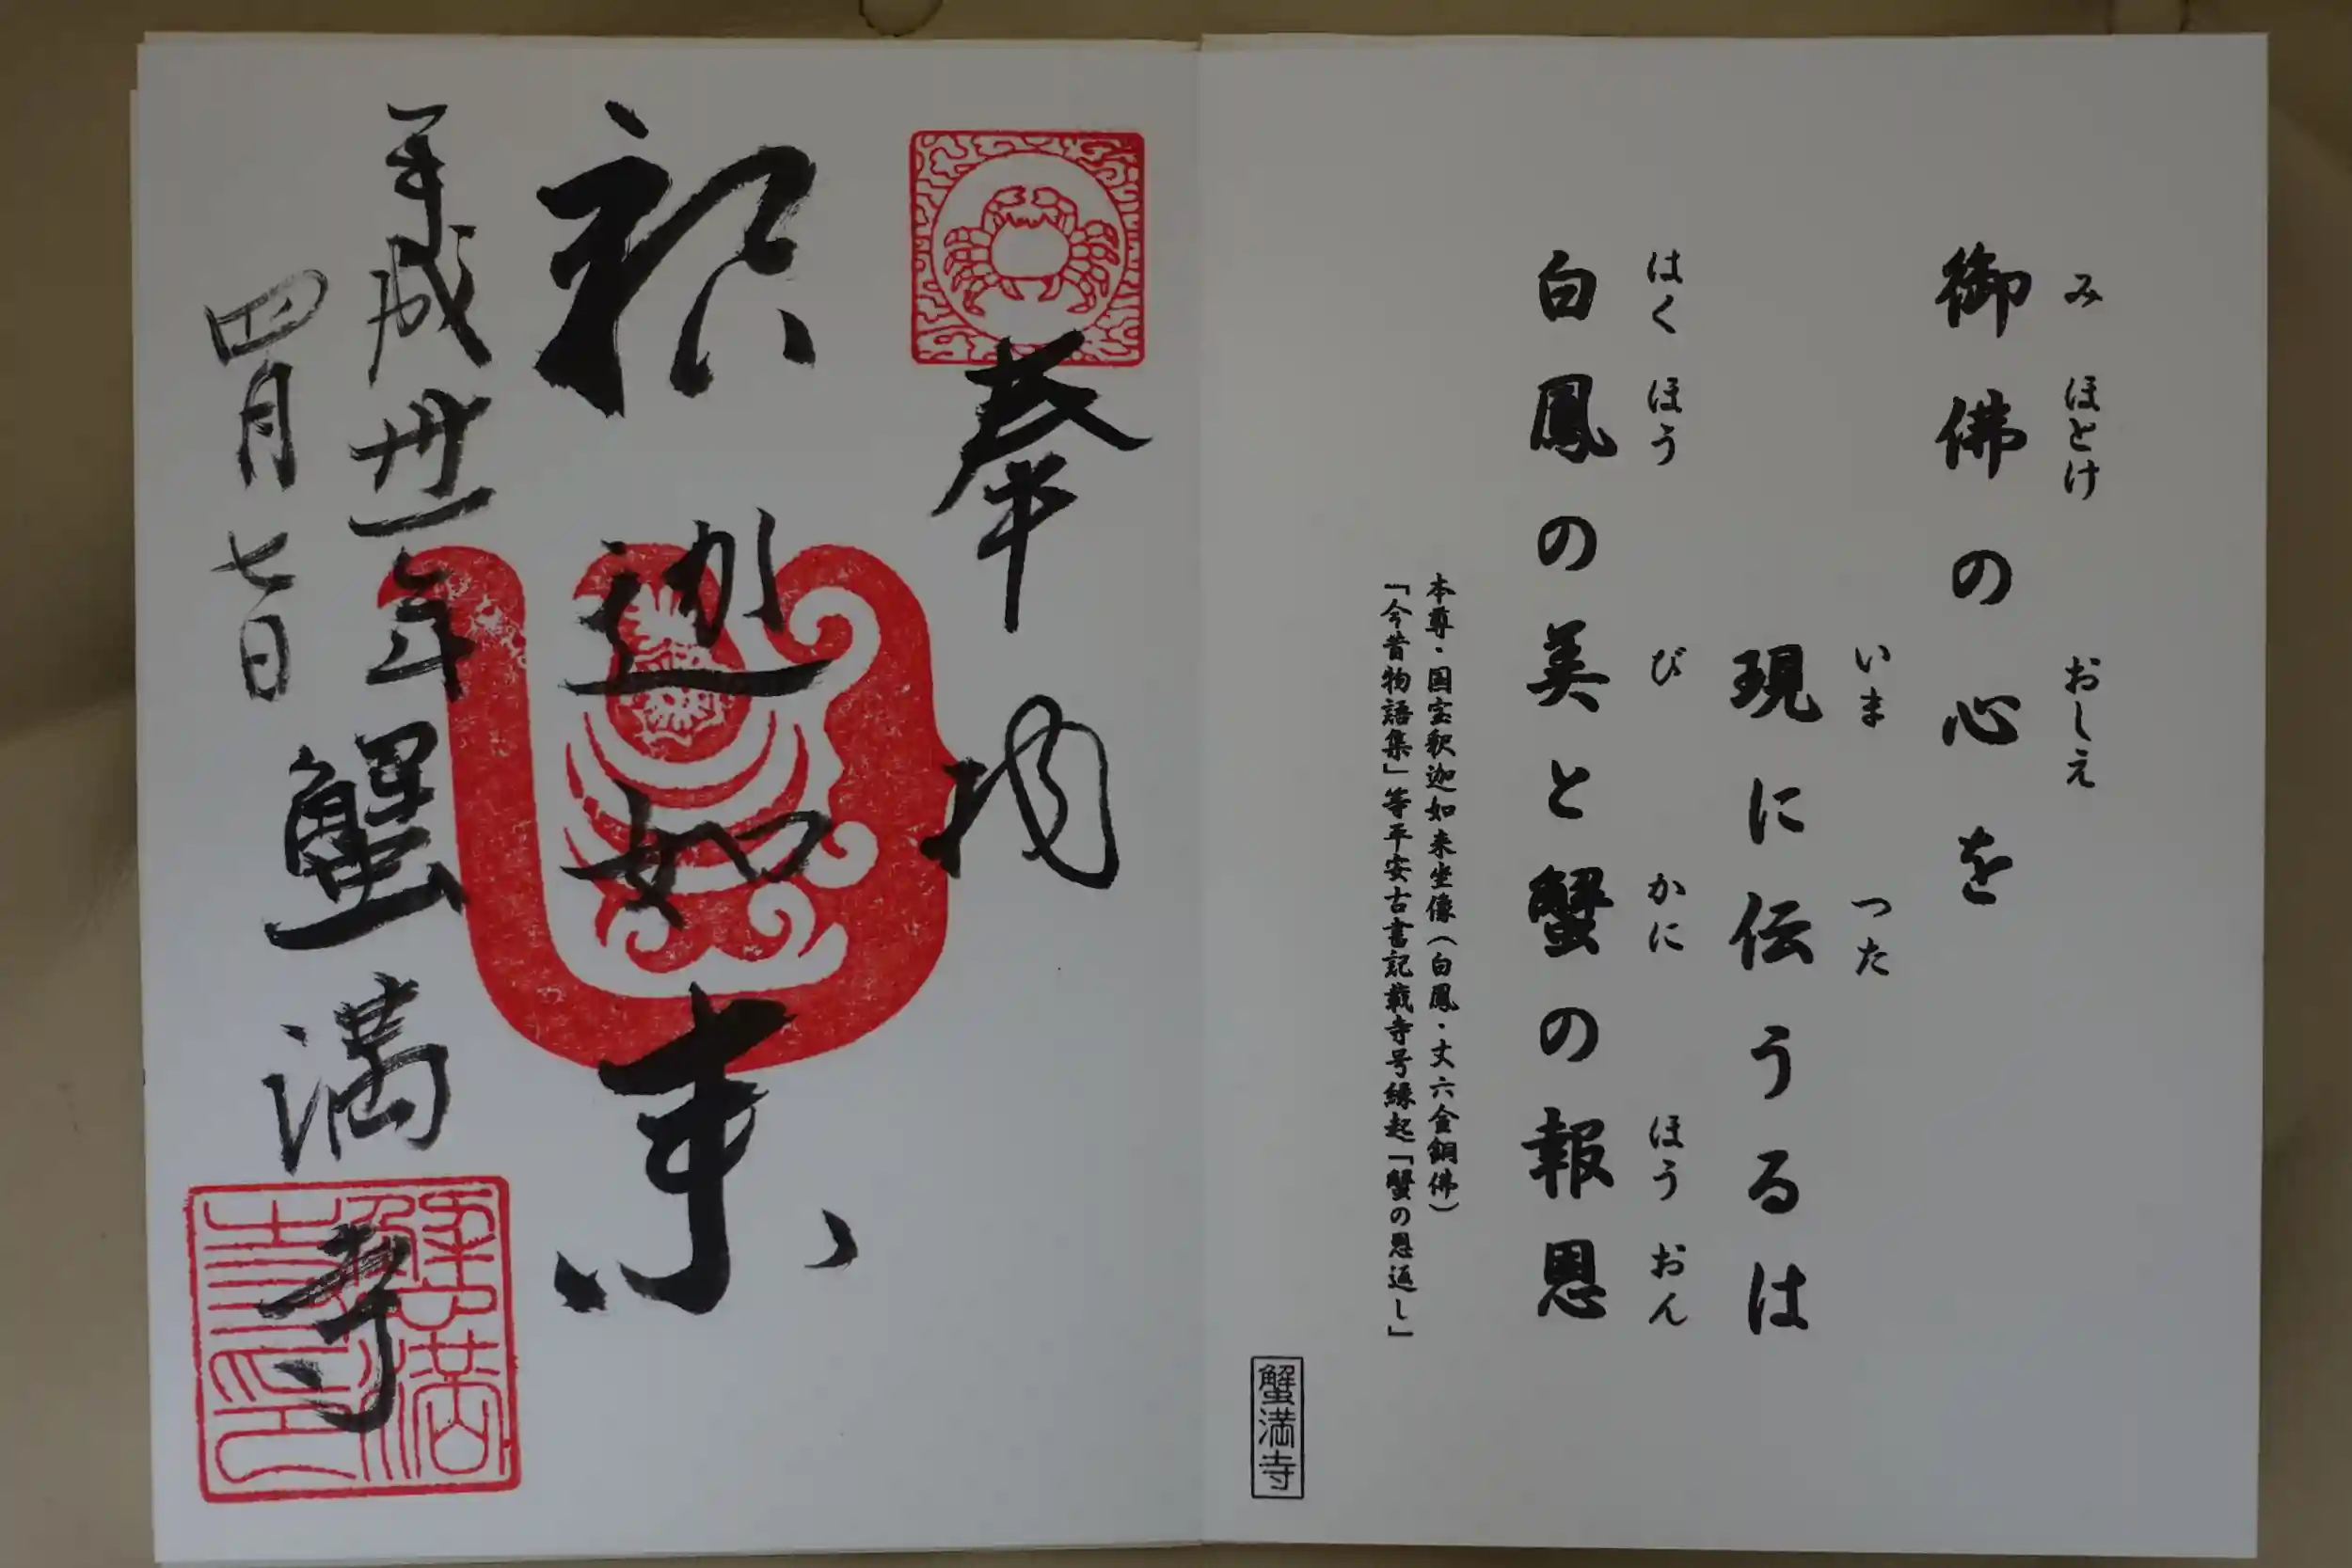 御佛の心を
み ほとけ おしえ
現に伝うるは
いま つた
白鳳の美と蟹の報恩
はく ほう び かに ほう おん
本尊・国宝釈迦如来坐像(白鳳・丈六金銅佛)
「今昔物語集」等平安古書記載寺号縁起「蟹の恩返し」
蟹満寺
奉拝
釈迦如来
平成卅一年
四月七日
蟹満寺
蟹満寺印